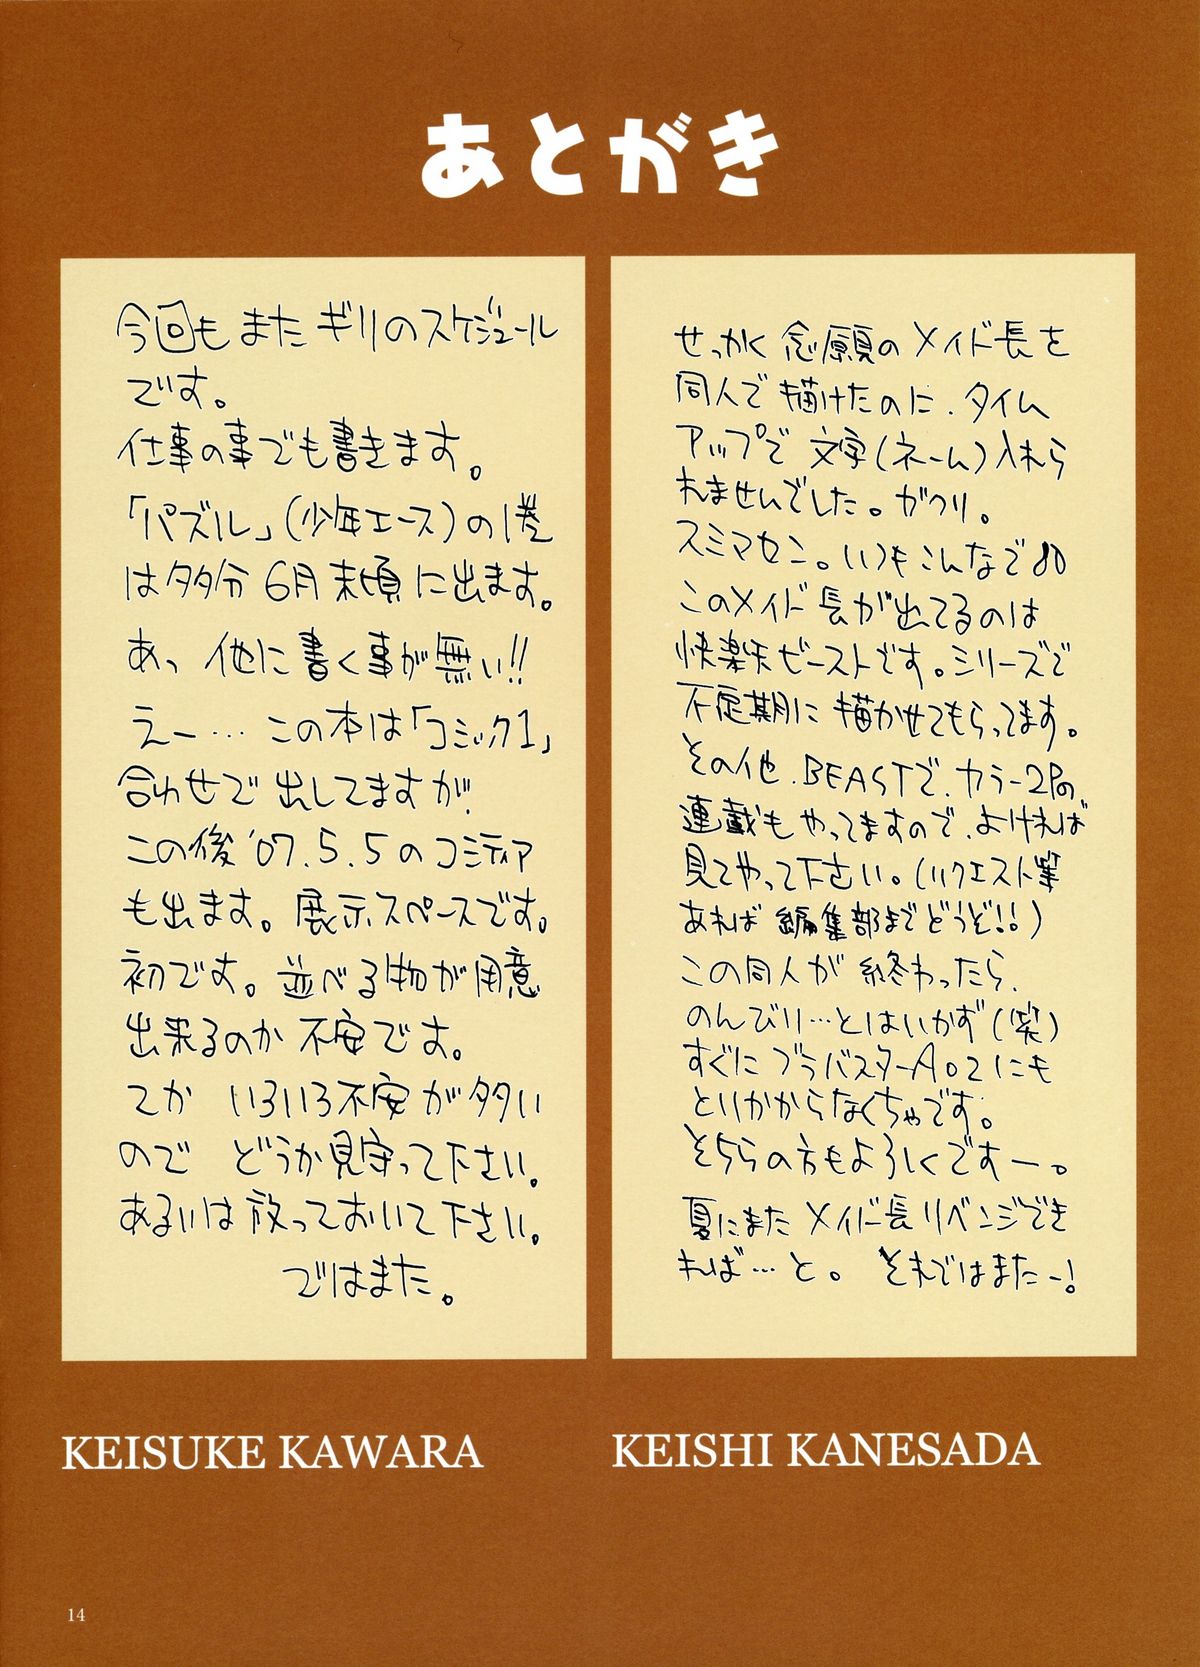 あとがき
今回もまた ギリのスケジュール
です。
仕事の事でも書きます。
「パズル」(少年エース)の1巻
は多分 6月 末頃に出ます。
あっ 他に 書く事が無い!!
えー… この本は「コミック1」
合わせで 出してますが、
この後 '07.5.5のコミティア
も出ます。展示スペースです。
初です。並べる物が用意
出来るのか 不安です。
てか いろいろ不安が多い
ので どうか見守って下さい。
あるいは 放っておいて 下さい。
ではまた。
KEISUKE KAWARA
せっかく 念願の メイド長を
同人で 描けたのに、タイム
アップで 文字(ネーム)入れら
れませんでした。ガクリ。
スミマセン。いつもこんなで
このメイド長が出てるのは
快楽天ビーストです。シリーズで
不定期に 描かせてもらってます。
その他、BEASTで、カラー2Pの
連載も やってますので、よければ
見てやって下さい。(リクエスト等
あれば 編集部までどうぞ!!)
この同人が 終わったら、
のんびり…とはいかず(笑)
すぐに ブラバスターA02にも
とりかからなくちゃです。
そちらの方もよろしくですー。
夏にまた メイド長リベンジでき
れば…と。 それではまたー!
KEISHI KANESADA
14